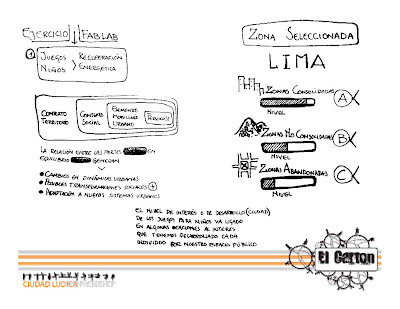 EJERCICIO FABLAB
1
JUEGOS NIÑOS > RECUPERACIÓN ENERGÉTICA
CONTEXTO TERRITORIO
CONTEXTO SOCIAL
ELEMENTOS MOBILIARIO URBANO
LA RELACIÓN ENTRE LAS PARTES
EQUILIBRIO GENERAN
CAMBIOS EN DINÁMICAS URBANAS
POSIBLES TRANSFORMACIONES SOCIALES +
ADAPTACIÓN A NUEVOS SISTEMAS URBANOS
ZONA SELECCIONADA
LIMA
ZONAS CONSOLIDADAS
NIVEL
A
ZONAS NO CONSOLIDADAS
NIVEL
B
ZONAS ABANDONADAS
NIVEL
C
EL NIVEL DE INTERÉS O DE DESARROLLO (CIUDAD)
DE LOS JUEGOS PARA NIÑOS VA LIGADO
EN ALGUNAS OCASIONES AL INTERÉS
QUE TENEMOS DESARROLLADO CADA
INDIVIDUO POR NUESTRO ESPACIO PÚBLICO
El Carton
CIUDAD LUDICA